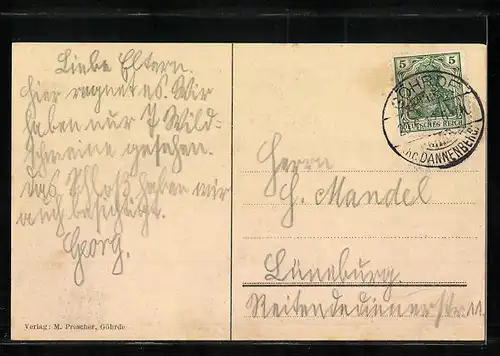 Liebe Eltern.
Hier regnet es. Wir
haben nur 7 Wild-
schweine gesehen.
Das Schloß haben wir
auch besichtigt.
Georg.
Verlag: M. Prescher, Göhrde
5 5
DEUTSCHES REICH
GÖHRDE
(KR. DANNENBERG)
Herrn
H. Mandel
Lüneburg.
Reitendedienerstr. 11